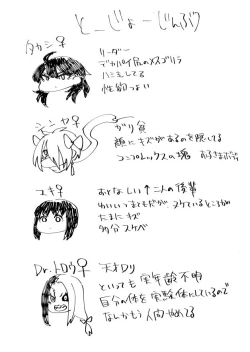 とーじょーじんぶつ
タカシ♀
リーダー
デカパイ尻のメスゴリラ
ハミ毛してる
性節つよい
シンヤ♀
ガリ貧
顔にキズがあるのを隠してる
コンプレックスの塊
ユキ♀
おとなしい↑二人の後輩
かわいいつまともだが、ヌケているところが
たまにキズ
多分スケベ
Dr.トロウ♀
天才ロリ
といっても実年齢不明
自分の体を実験体にしているので
なんかもう人間やめてる